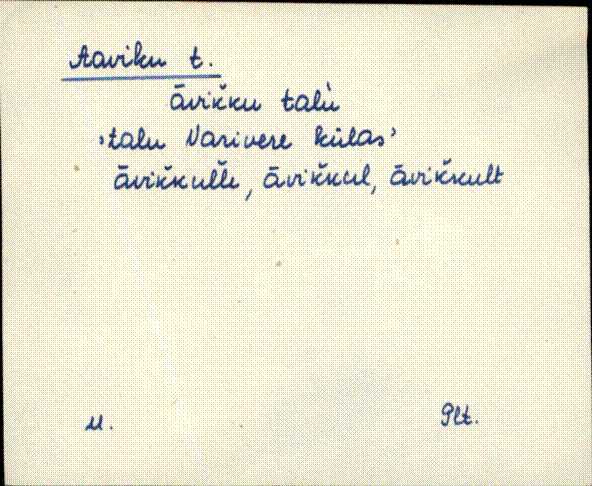 Aaviku t.
āvik̆ku talù
›talu Narivere külas›
āvik̆kulle, āvik̆kul, āvik̆kult
M. Plt.